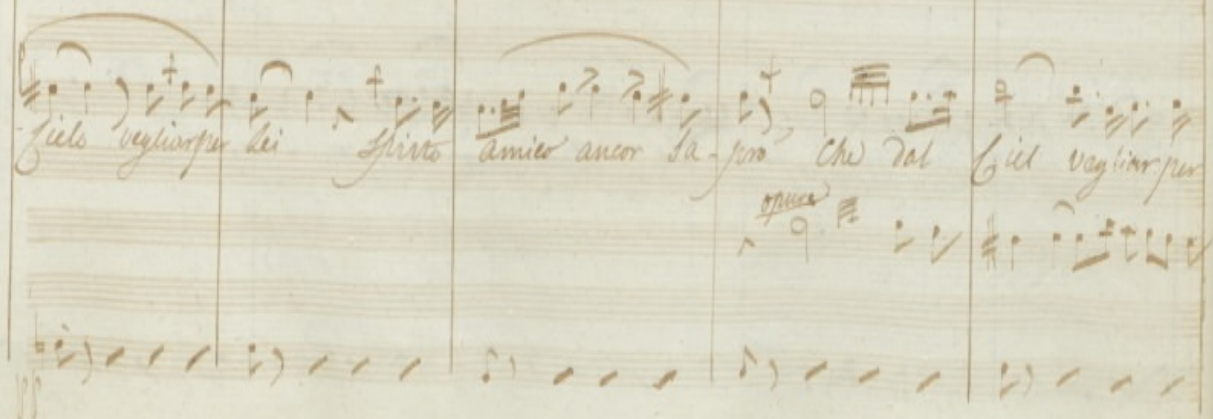 Cielo vegliar per lei Spirto amico ancor sa-prò Che dal Ciel vegliar per
opure